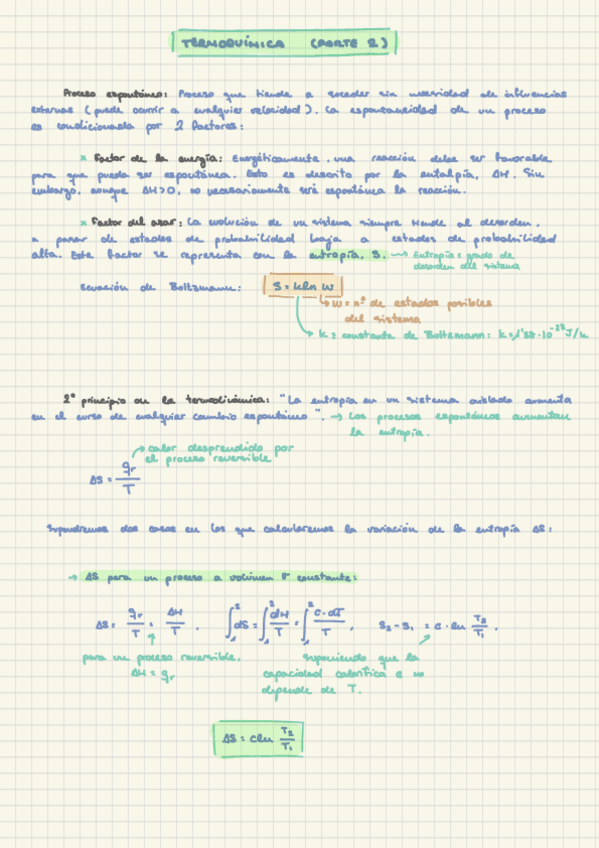 TERMOQUÍMICA (PARTE 2)
Proceso espontáneo: Proceso que tiende a suceder sin necesidad de influencias
externas (puede ocurrir a cualquier velocidad). La espontaneidad de un proceso
es condicionada por 2 factores:
* Factor de la energía: Energéticamente, una reacción debe ser favorable
para que pueda ser espontánea. Esto es descrito por la entalpía, ΔH. Sin
embargo, aunque ΔH>0, no necesariamente será espontánea la reacción.
* Factor del azar: La evolución de un sistema siempre tiende al desorden,
a pasar de estados de probabilidad baja a estados de probabilidad
alta. Este factor se representa con la entropía, S. → Entropía = grado de
desorden del sistema
Ecuación de Boltzmann: S = k ln W
→ W = nº de estados posibles
del sistema
→ k = constante de Boltzmann: k = 1'38·10⁻²³ J/K
2º principio de la termodinámica: "La entropía en un sistema aislado aumenta
en el curso de cualquier cambio espontáneo". → Los procesos espontáneos aumentan
la entropía.
→ calor desprendido por
el proceso reversible
ΔS = qr/T
Supondremos dos casos en los que calcularemos la variación de la entropía ΔS:
→ ΔS para un proceso a volumen V constante:
ΔS = qr/T = ΔH/T . ∫₁² dS = ∫₁² dH/T = ∫₁² c·dT/T . S₂ - S₁ = c · ln T₂/T₁ .
para un proceso reversible, suponiendo que la
ΔH = qr capacidad calorífica c no
depende de T.
ΔS = c ln T₂/T₁